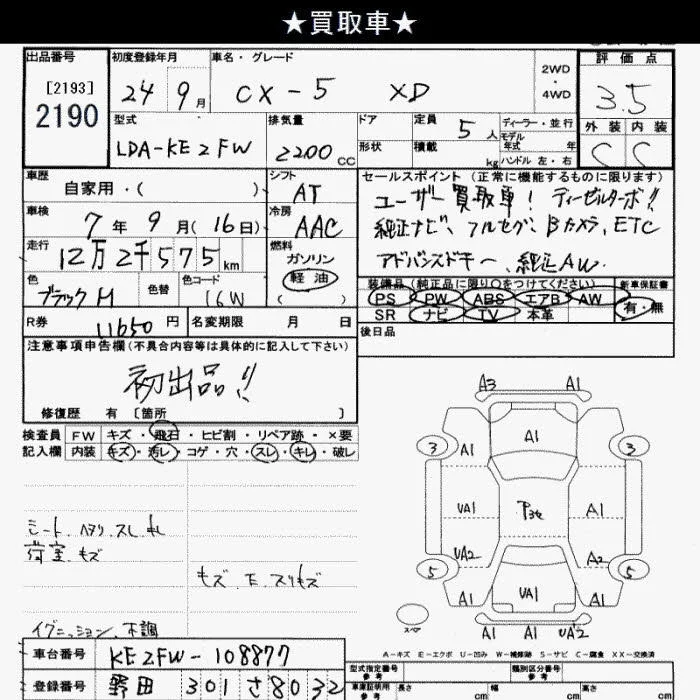 ★買取車★
出品番号 初度登録年月 車名・グレード 2WD・4WD 評価点
[2193] 24 9月 CX-5 XD 3.5
2190
型式 排気量 ドア 定員 5人 ディーラー・並行 外装 内装
モデル年式 年
LDA-KE2FW 2200CC 形状 積載 kg ハンドル 左・右 C C
車歴 シフト セールスポイント(正常に機能するものに限ります)
自家用・( ) AT ユーザー買取車! ディーゼルターボ!!
車検 冷房 純正ナビ、フルセグ、Bカメラ、ETC
7年9月(16日) AAC アドバンスドキー、純正AW.
走行 燃料
12万2千575km ガソリン
軽油
( )
色 色替 色コード 装備品(純正品に限り○をつけてください) 新車保証書
ブラックM 16W PS PW ABS エアB AW 有・無
SR ナビ TV 本革
R券 11650円 名変期限 月 日 後日品
注意事項申告欄(不具合内容等は具体的に記入して下さい)
初出品!!
修復歴 有 〔箇所 〕
検査員 FW キズ・飛石・ヒビ割・リペア跡・×要
記入欄 内装 キズ・汚レ・コゲ・穴・スレ・キレ・破レ
シート、ヘタリ、スレ、キレ
荷室、キズ
キズ、E、スリキズ
イグニッション、不調
A3 A1
A1
3 A1 3
UA1 P3e A1
UA2 A2
5 UA1 5
A1 A1
スペア A1 A1 UA2
A-キズ E-エクボ U-凹み W-補修跡 S-サビ C-腐食 XX-交換済
車台番号 KE2FW-108877 型式指定番号 参考 類別区分番号 参考
登録番号 野田 301 さ 8032 車庫証明用 参考 長さ cm 幅 cm 高さ cm